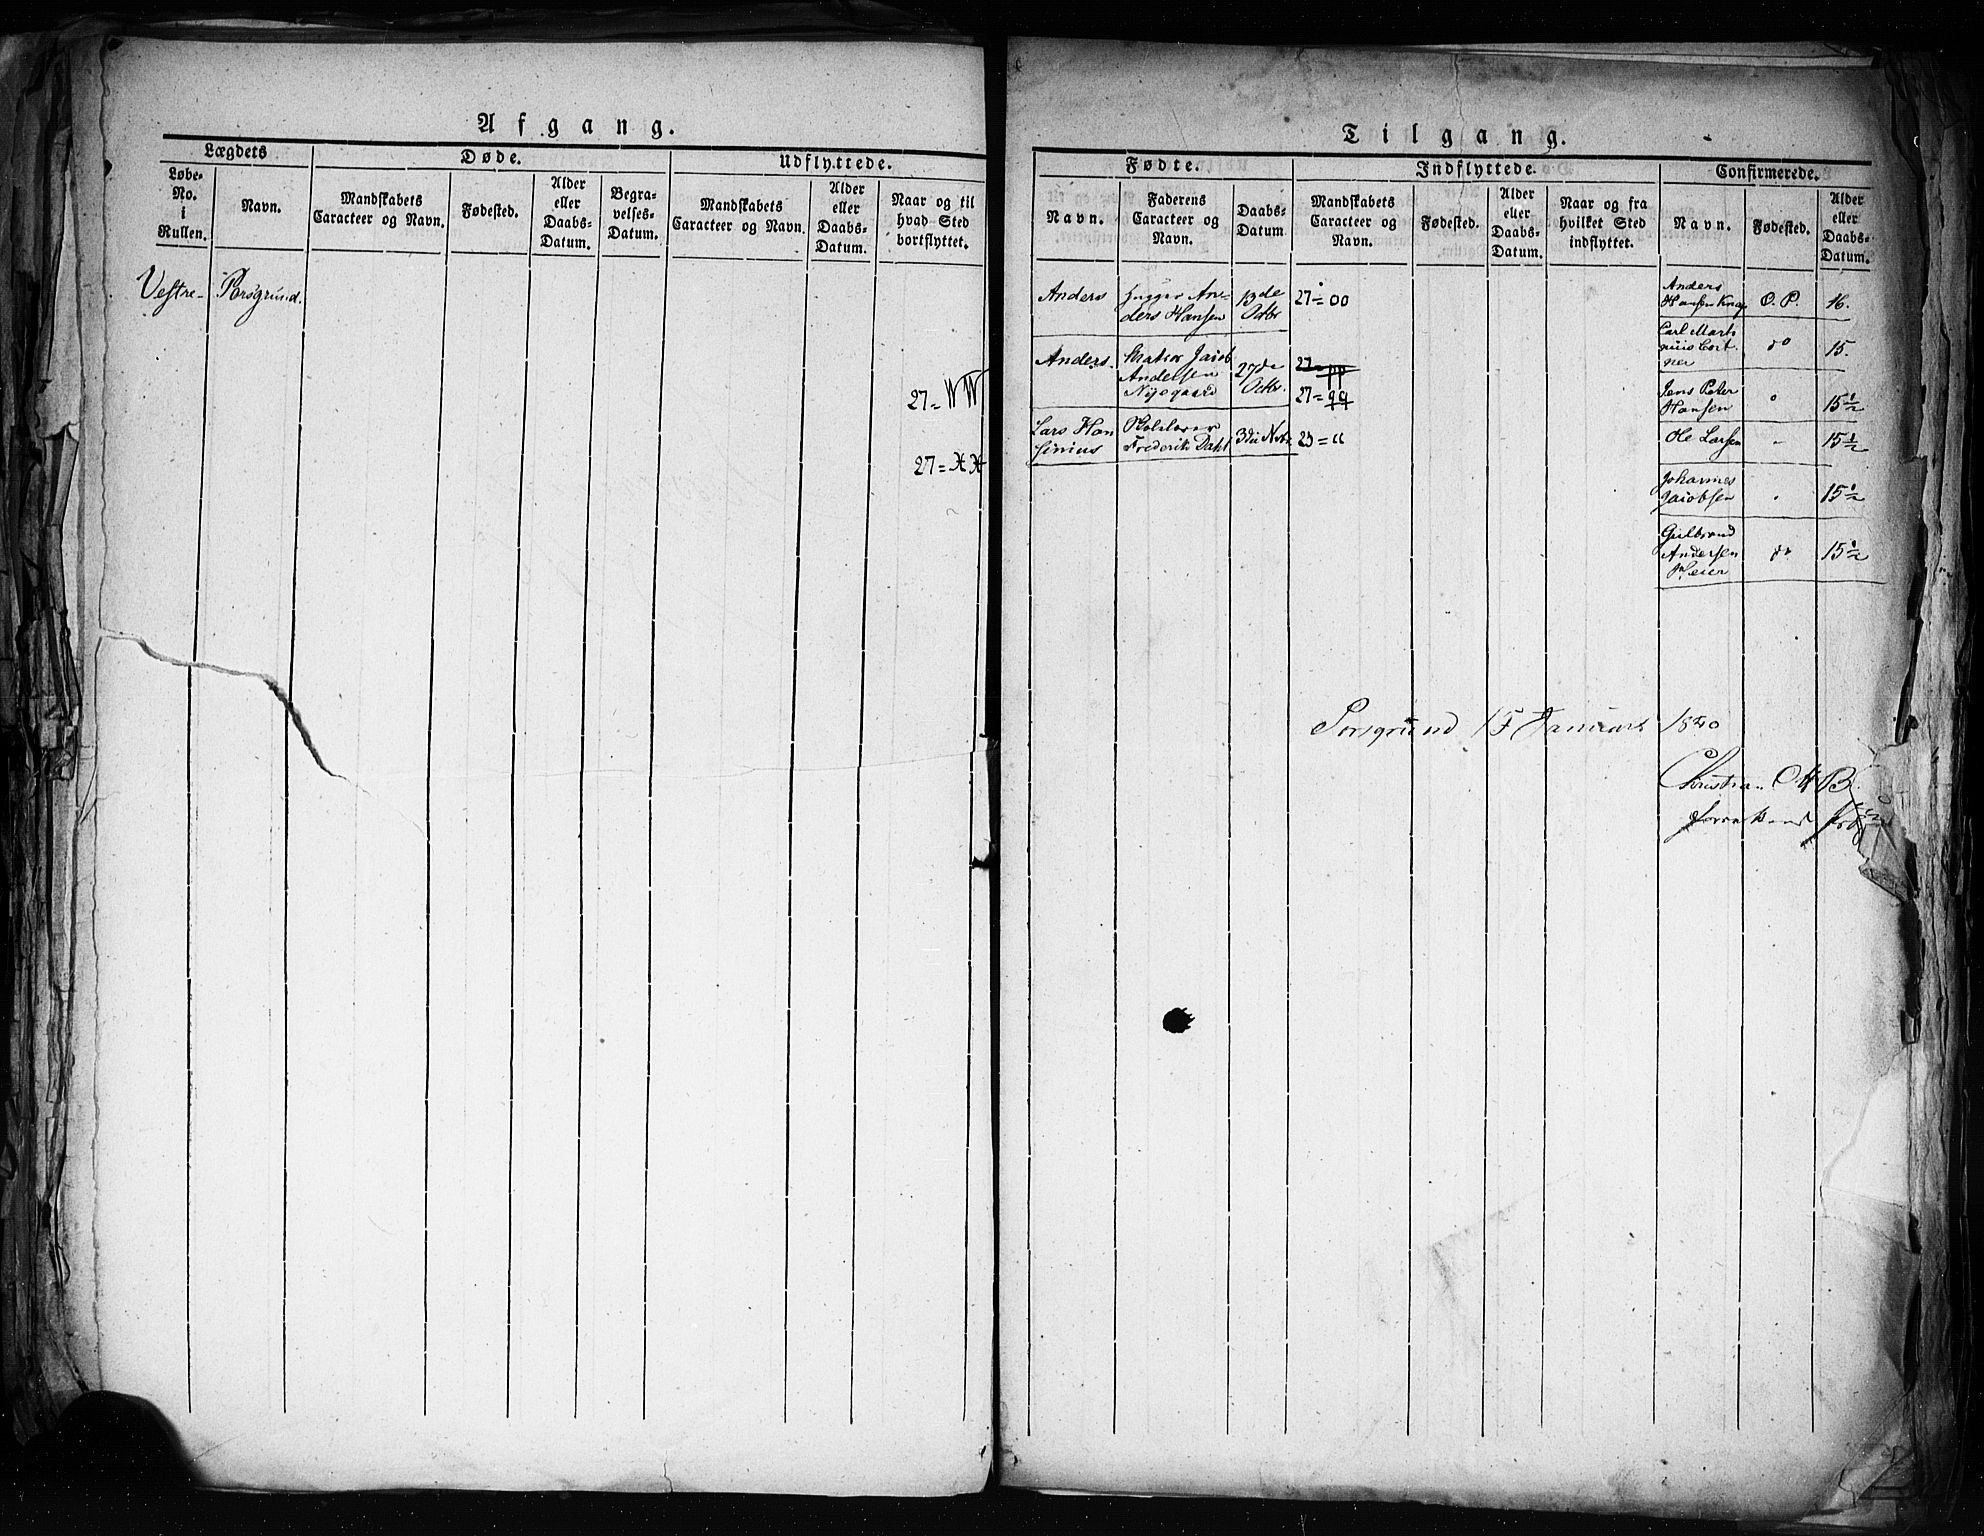 Afgang.
Lægdets
Døde.
Udflyttede.
Løbe-
No.
i
Rullen.
Navn.
Mandskabets
Caracteer og Navn.
Fødested.
Alder
eller
Daabs-
Datum.
Begra-
velses-
Datum.
Mandskabets
Caracteer og Navn.
Alder
eller
Daabs-
Datum.
Naar og til
hvad Sted
bortflyttet.
Vestre- Porsgrund.
27=WW
27=XX
Tilgang.
Fødte.
Indflyttede.
Confirmerede.
Navn.
Faderens
Caracteer og
Navn.
Daabs-
Datum
Mandskabets
Caracteer og
Navn.
Fødested.
Alder
eller
Daabs-
Datum.
Naar og fra
hvilket Sted
indflyttet.
Navn.
Fødested.
Alder
eller
Daabs-
Datum.
Anders
An-
ders Hansen
13de
Octbr
27=00
Anders.
Matros Jacob
Andersen
27de
Octbr.
27=pp
27=qq
Lars Han
sinius
Frederik Dahl
3die
Anders
Hansen
O. P.
16.
Carl
do
15.
Jens Peter
Hansen
"
15½
Ole Larsen
"
15½
Johannes
Jacobsen
"
15½
Gulbrand
Andersen
do
15½
Porsgrund 15 Januar 1840